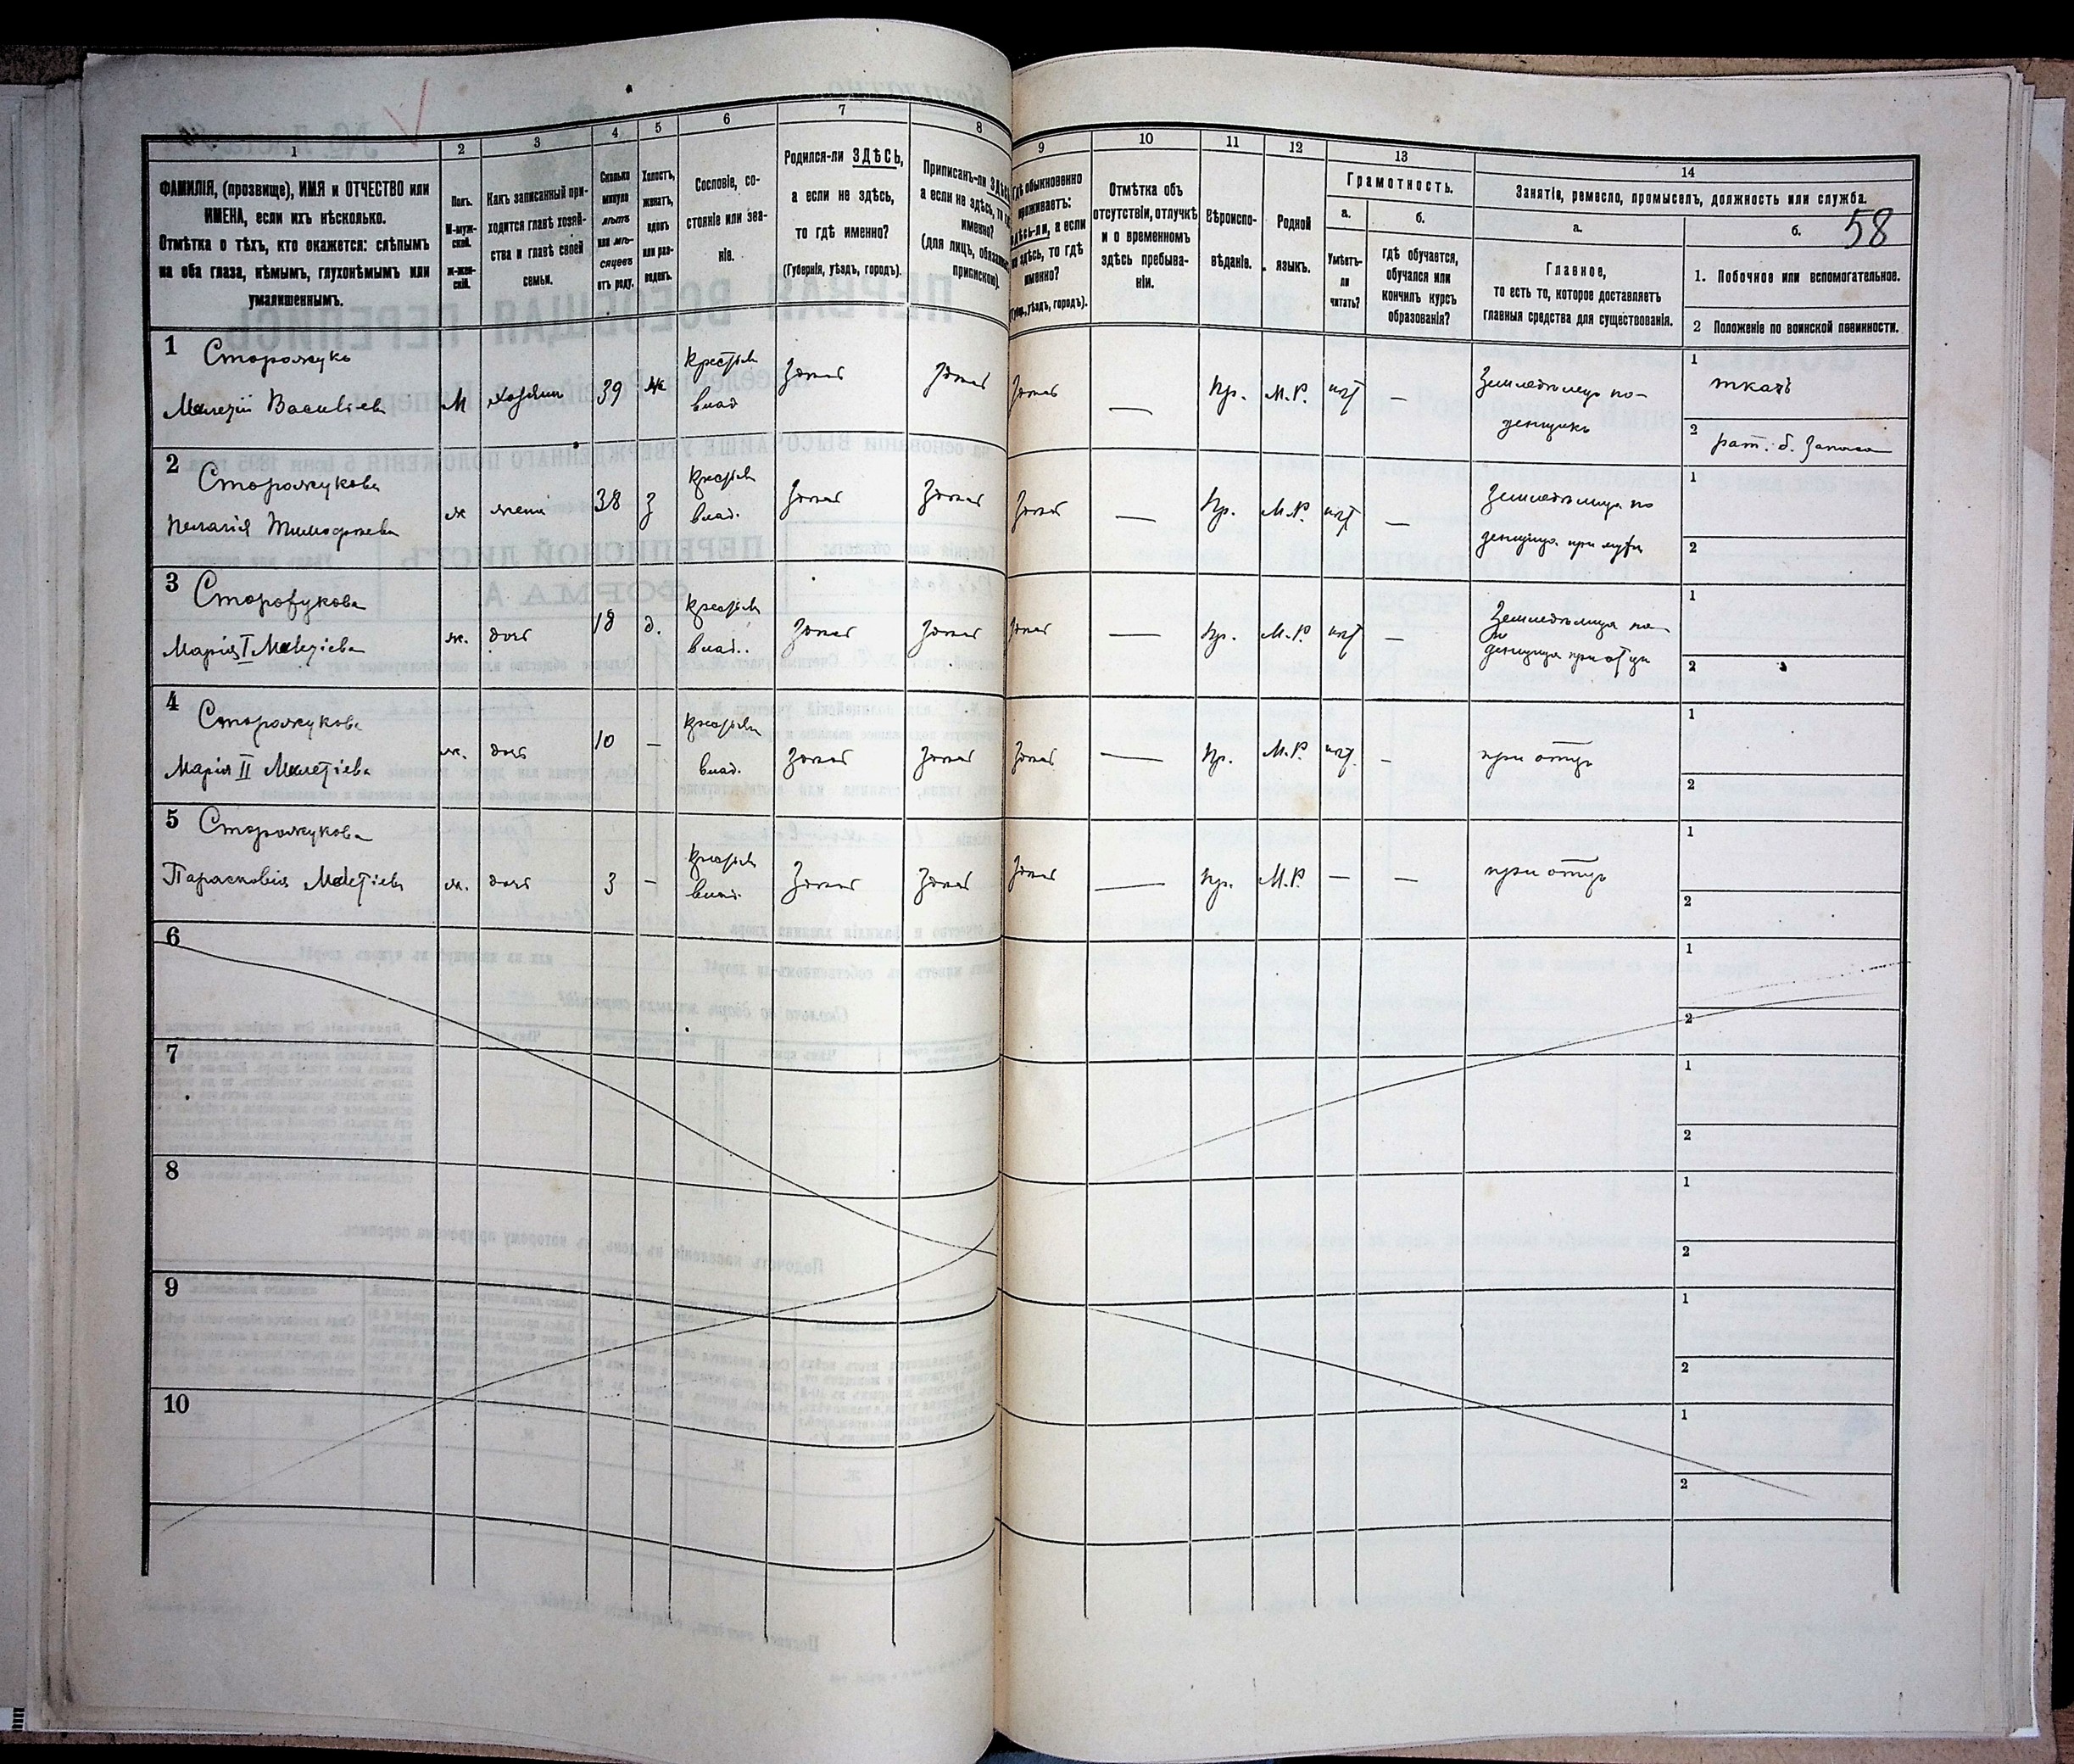 58
1
2
3
4
5
6
7
8
9
10
11
12
13
14
ФАМИЛІЯ, (прозвище), ИМЯ и ОТЧЕСТВО или
ИМЕНА, если ихъ нѣсколько.
Отмѣтка о тѣхъ, кто окажется: слѣпымъ
на оба глаза, нѣмымъ, глухонѣмымъ или
умалишеннымъ.
Полъ.
М-муж-
ской.
ж-жен-
скій.
Какъ записанный при-
ходится главѣ хозяй-
ства и главѣ своей
семьи.
Сколько
минуло
лѣтъ
или мѣ-
сяцевъ
отъ роду.
Холостъ,
женатъ,
вдовъ
или раз-
веденъ.
Сословіе, со-
стояніе или зва-
ніе.
Родился-ли ЗДѢСЬ,
а если не здѣсь,
то гдѣ именно?
(Губернія, уѣздъ, городъ).
Приписанъ-ли
а если не здѣсь, то
именно?
(для лицъ,
припискою).
обыкновенно
проживаетъ:
здѣсь-ли, а если
здѣсь, то гдѣ
именно?
уѣздъ, городъ).
Отмѣтка объ
отсутствіи, отлучкѣ
и о временномъ
здѣсь пребыва-
ніи.
Вѣроиспо-
вѣданіе.
Родной
языкъ.
Грамотность.
а.
б.
Умѣетъ-
ли
читать?
гдѣ обучается,
обучался или
кончилъ курсъ
образованія?
Занятіе, ремесло, промыселъ, должность или служба.
а.
б.
Главное,
то есть то, которое доставляетъ
главныя средства для существованія.
1. Побочное или вспомогательное.
2 Положеніе по воинской повинности.
1 Сторожукъ
Мелетій Васильев
М хозяин 39 ж
крестьян
влад
Здесь Здесь Здесь — Пр. М.Р. нет —
Земледелец по-
денщикъ
1 ткачъ
2 рат. б. Запаса
2 Сторожукова
Пелагія Тимофеева
ж жена 38 з
крестьян
влад.
Здесь Здесь Здесь — Пр. М.Р. нет —
Земледелица по
денщица при муже
1
2
3 Сторожукова
Марія I Мелетіева
ж. дочь 18 д.
крестьян
влад.
Здесь Здесь Здесь — Пр. М.Р. нет —
Земледелица по
денщица при отце
1
2
4 Сторожукова
Марія II Мелетіева
ж. дочь 10 —
крестьян
влад.
Здесь Здесь Здесь — Пр. М.Р. нет. —
при отце
1
2
5 Сторожукова
Парасковія Мелетіева
ж. дочь 3 —
крестьян
влад.
Здесь Здесь Здесь — Пр. М.Р. — —
при отце
1
2
6
1
2
7
1
2
8
1
2
9
1
2
10
1
2